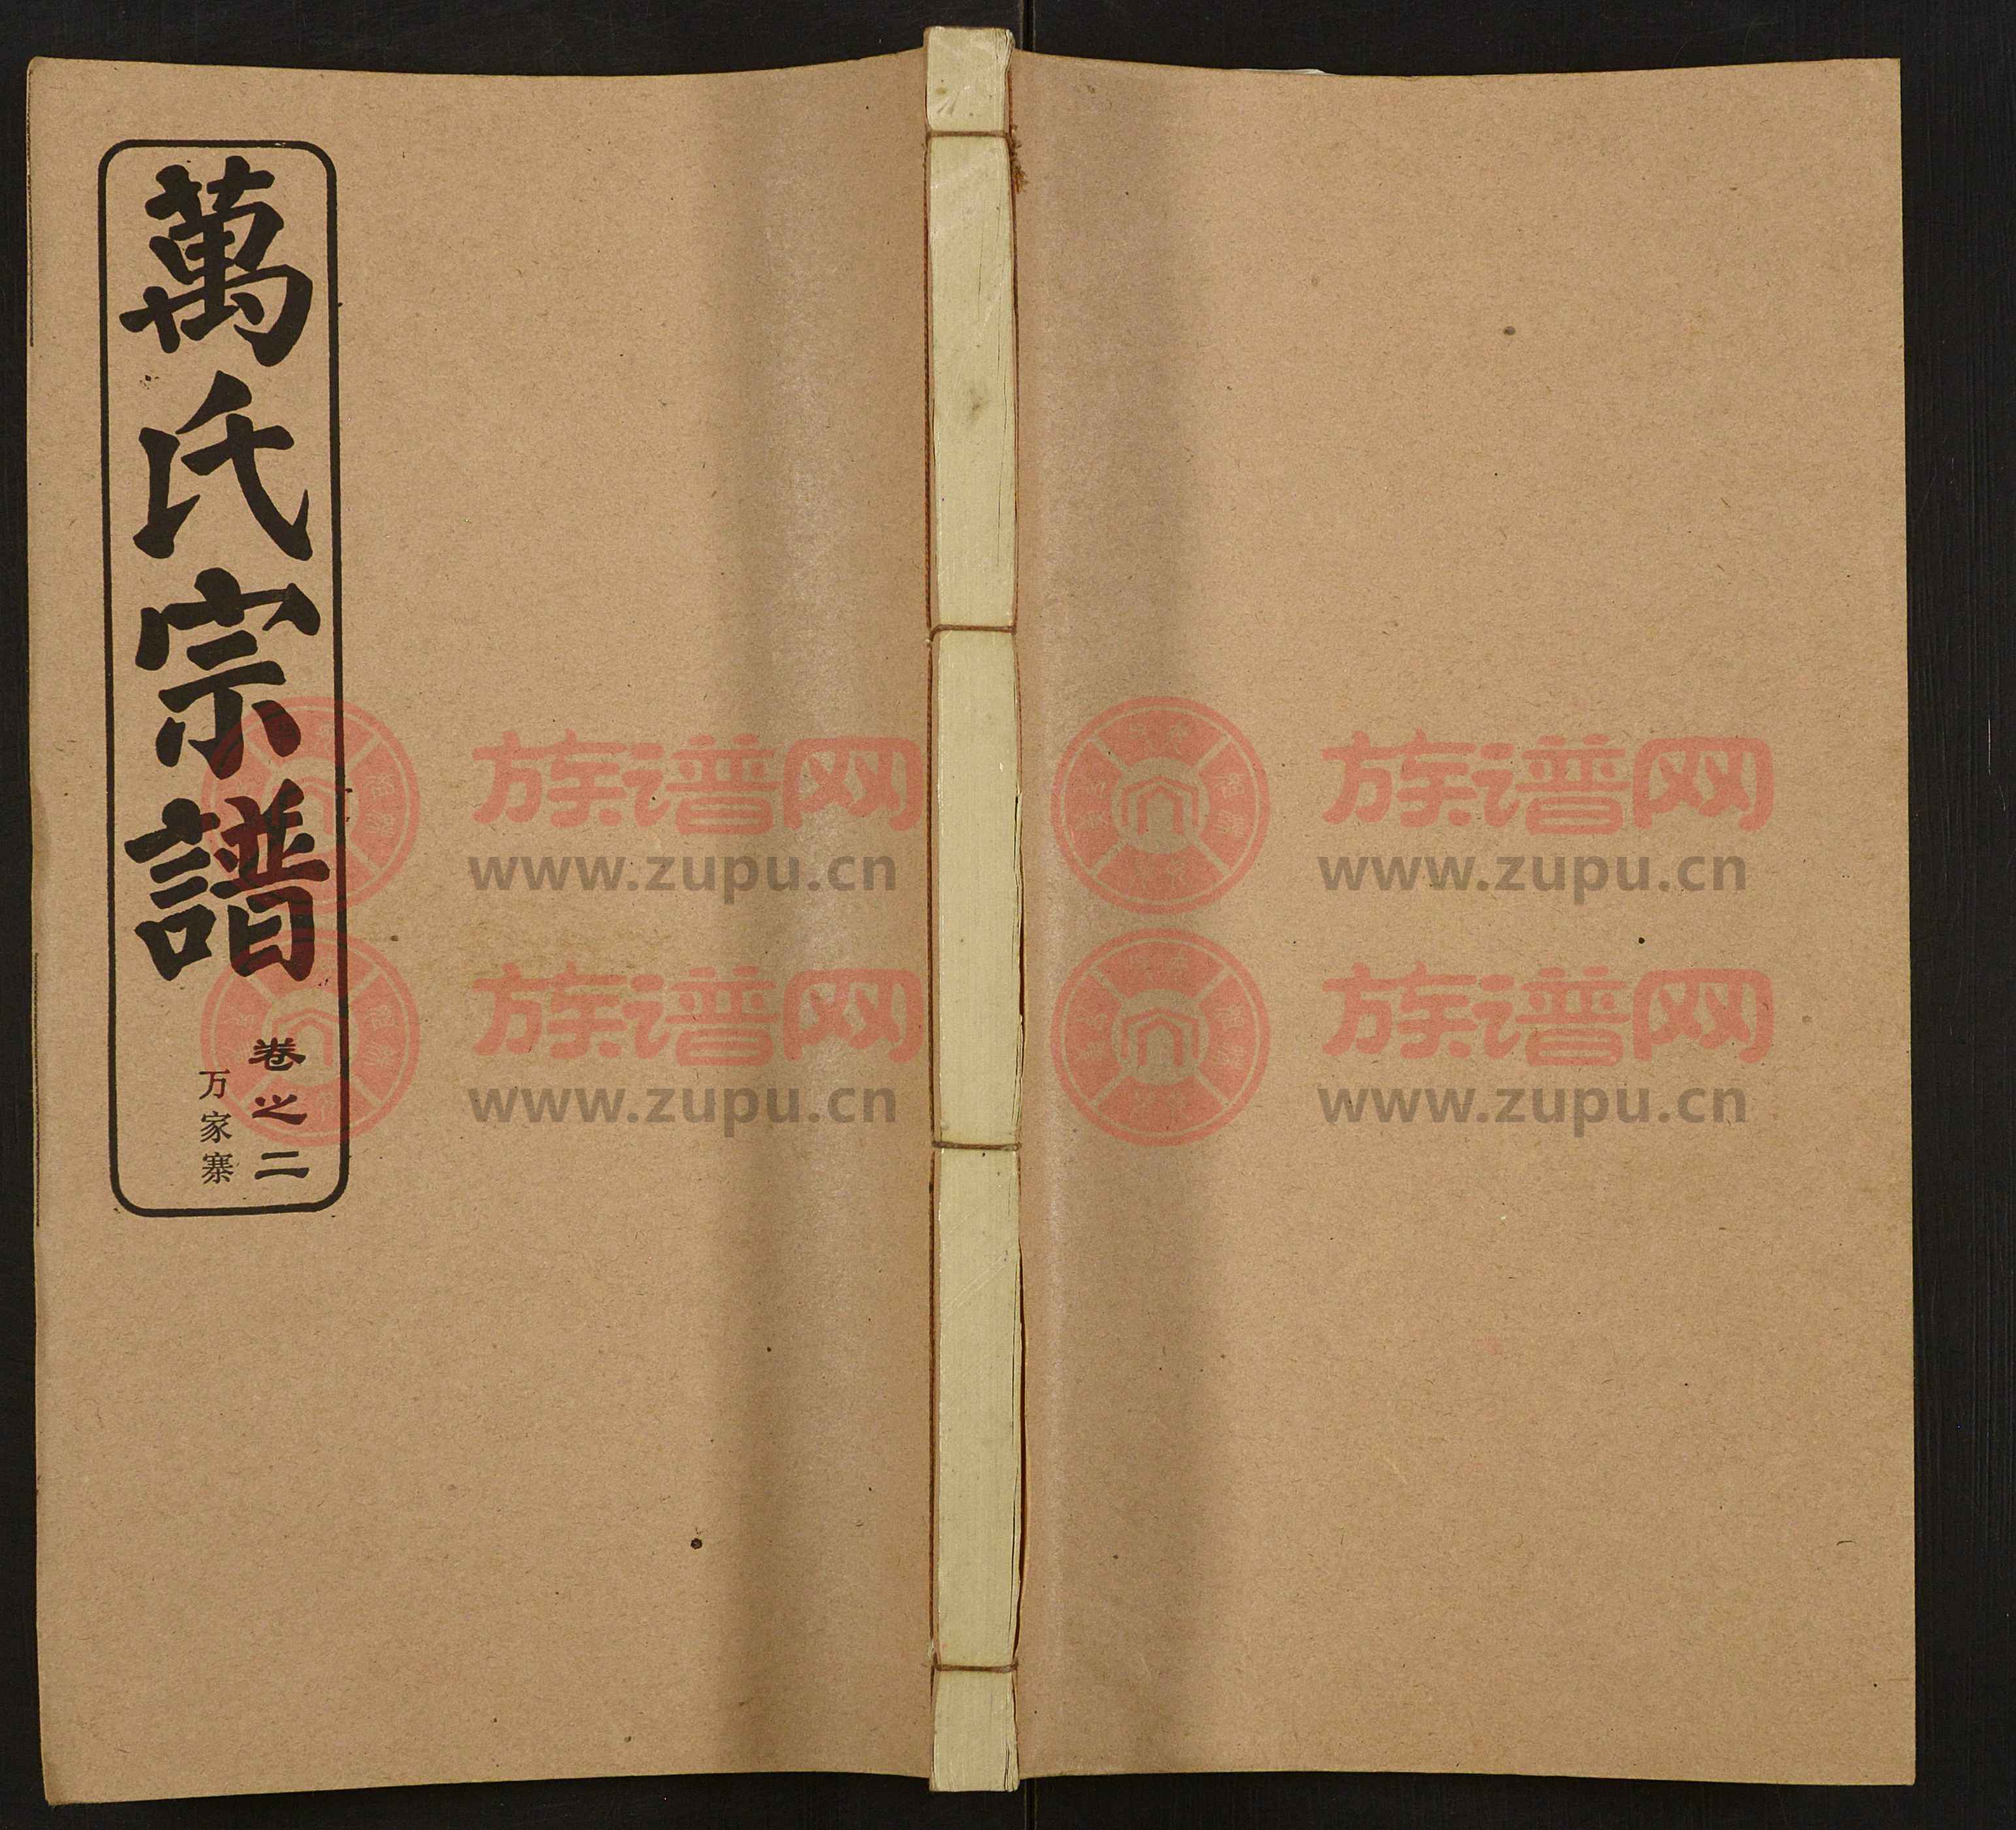 萬氏宗譜
卷之二
万家寨
族谱网
www.zupu.cn
族谱网
www.zupu.cn
族谱网
www.zupu.cn
族谱网
www.zupu.cn